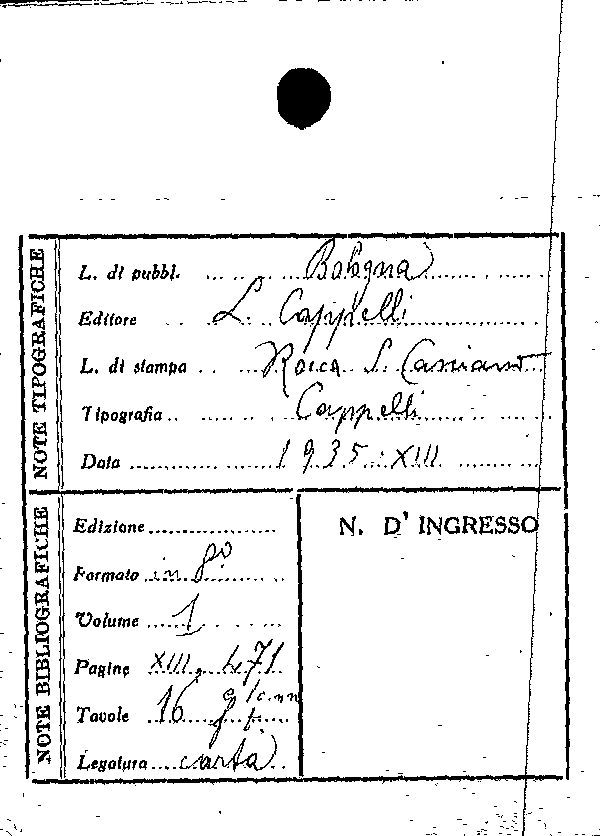 NOTE TIPOGRAFICHE
L. di pubbl. Bologna
Editore L. Cappelli
L. di stampa Rocca S. Casciano
Tipografia Cappelli
Data 1935-XIII
NOTE BIBLIOGRAFICHE
Edizione
Formato in 8º
Volume 1
Pagine XIII, 471
Tavole 16
Legatura carta
N. D' INGRESSO